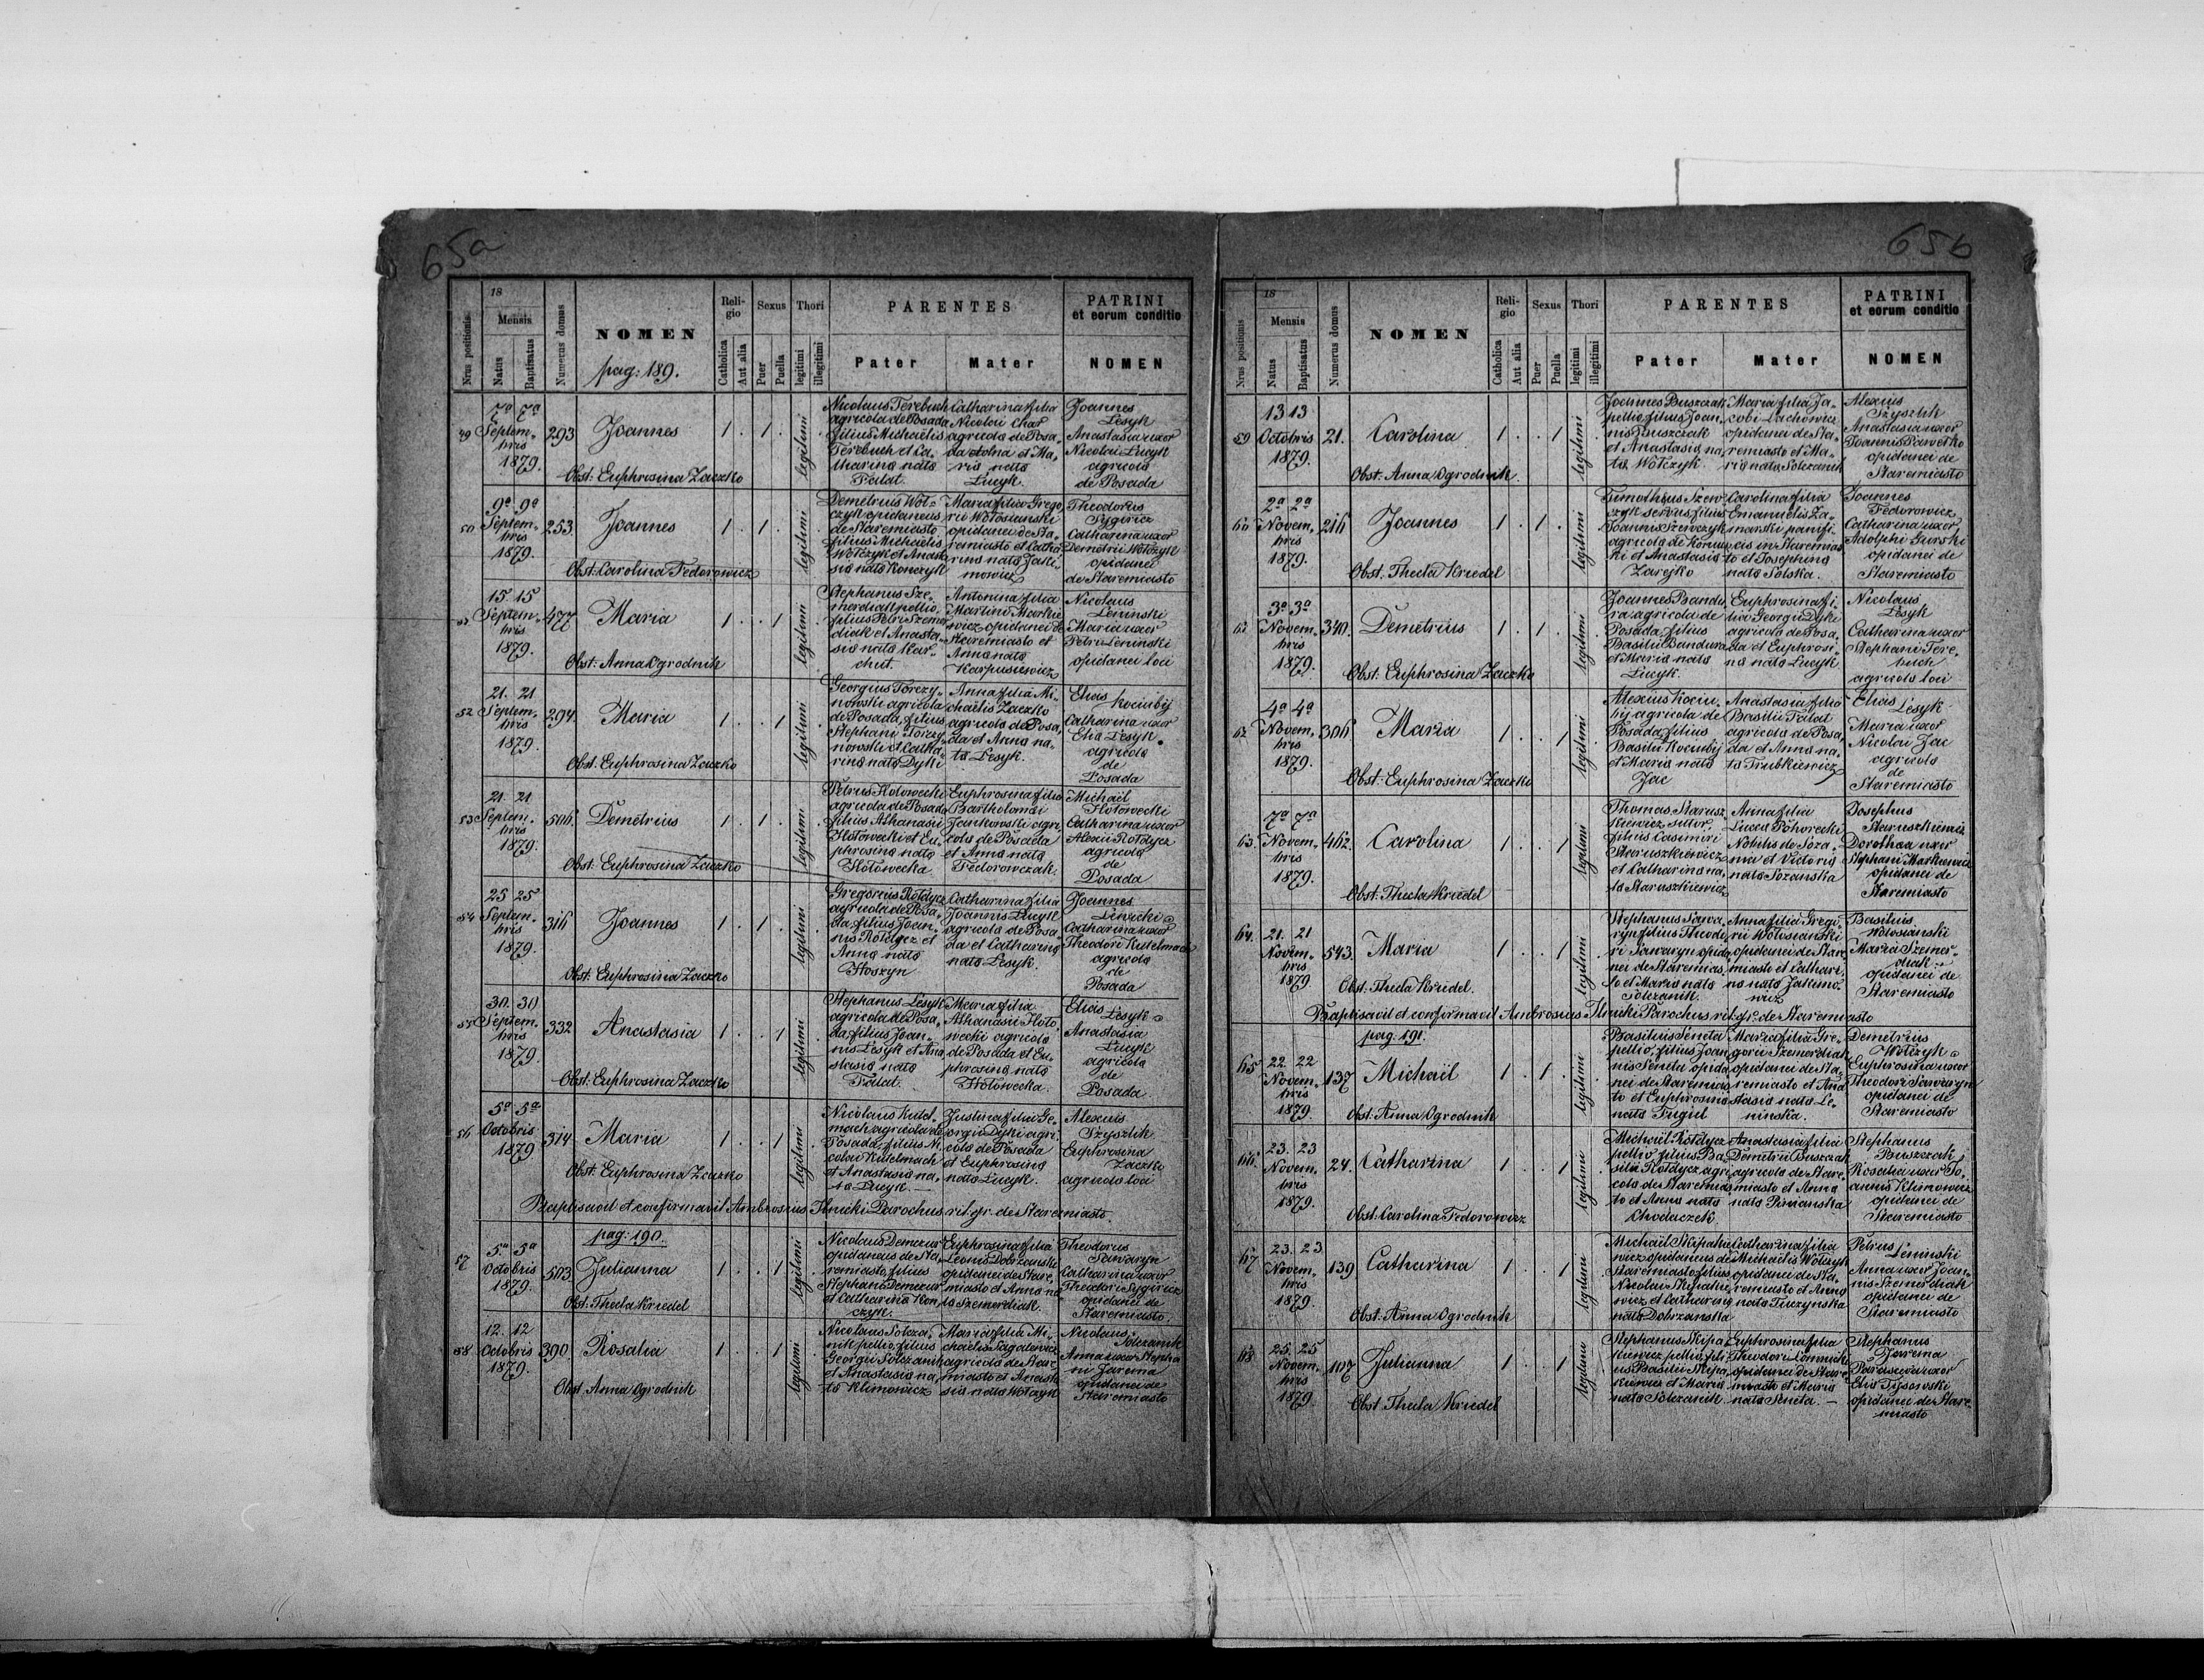 65a
18
Mensis
Nrus positionis
Natus
Baptisatus
Numerus domus
NOMEN
pag: 189.
Religio
Catholica
Aut alia
Sexus
Puer
Puella
Thori
legitimi
illegitimi
PARENTES
Pater
Mater
PATRINI
et eorum conditio
NOMEN
49
7ª 7ª
Septem-
bris
1879.
293
Joannes
1 . 1 .
legitimi
Obst: Euphrosina Zaczko
Nicolaus Terebuch
agricola de Posada
filius Michaelis
Terebuch et Ca-
tharina nata
Fałat.
Catharina filia
Nicolai Char
agricola de Posa-
da dolna et Ma-
ria nata
Lucyk.
Joannes
Lesyk
Anastasia uxor
Nicolai Lucyk
agricola
de Posada
50
9ª 9ª
Septem-
bris
1879.
253.
Joannes
1 . 1 .
legitimi
Obst: Carolina Fedorowicz
Demetrius Woł-
czyk opidaneus
de Staremiasto
filius Michaelis
Wołczyk et Anasta
sia nata Konczyk
Maria filia Grego
rii Wołosianski
opidanei de Sta-
remiasto et Catha
rina nata Jaki-
mowicz
Theodorus
Sygiricz
Catharina uxor
Demetrii Wołczyk
opidanei
de Staremiasto
51
15. 15
Septem-
bris
1879.
477
Maria
1 . . 1
legitimi
Obst: Anna Ogrodnik
Stephanus Sze-
merdiak pellio,
filius Petri Szemer
diak et Anasta-
sia nata Kar-
chut.
Antonina filia
Martini Markie
wicz opidanei de
Staremiasto et
Anna nata
Karpusiewicz
Nicolaus
Leninski
Maria uxor
Petri Leninski
opidanei loci
52
21. 21
Septem-
bris
1879.
294.
Maria
1 . . 1
legitimi
Obst: Euphrosina Zaczko
Georgius Torczy-
nowski agricola
de Posada, filius
Stephani Torczy-
nowski et Catha-
rina nata Dyki
Anna filia Mi-
chaelis Zaczko
agricola de Posa-
da et Anna na-
ta Lesyk.
Elias
Kociubij
Catharina uxor
Elia Lesyk
agricola
de
Posada
53
21. 21
Septem-
bris
1879.
506.
Demetrius
1 . 1 .
legitimi
Obst: Euphrosina Zaczko
Petrus Hołowecki
agricola de Posada
filius Athanasii
Hołowecki et Eu-
phrosina nata
Hołowecka
Euphrosina filia
Bartholomai
Jankowski agri-
cola de Posada
et Anna nata
Fedorowczak.
Michaël
Hołowecki
Catharina uxor
Alexii Rołdycz
agricola
de
Posada
54
25 25
Septem-
bris
1879.
316
Joannes
1 . 1 .
legitimi
Obst: Euphrosina Zaczko
Gregorius Rołdycz
agricola de Posa-
da, filius Joan-
nis Rołdycz et
Anna nata
Hoszyn
Catharina filia
Joannis Lucyk
agricola de Posa-
da et Catharina
nata Lesyk.
Joannes
Lewicki
Catharina uxor
Theodori Kutelmach
agricola
de
Posada
55
30. 30
Septem-
bris
1879.
332
Anastasia
1 . . 1
legitimi
Obst: Euphrosina Zaczko
Stephanus Lesyk
agricola de Posa-
da filius Joan-
nis Lesyk et Ana
stasia nata
Fałat.
Maria filia
Athanasii Hoło-
wecki agricola
de Posada et Eu-
phrosina nata
Hołowecka.
Elias
Lesyk
Anastasia
Lucyk
agricola
de
Posada
56
5ª 5ª
Octobris
1879
314
Maria
1 . . 1
legitimi
Obst: Euphrosina Zaczko
Nicolaus Kutel-
mach agricola de
Posada, filius Ni-
colai Kutelmach
et Anastasia na-
ta Lucyk. —
Justina filia Ge-
orgii Dyki agri-
cola de Posada
et Euphrosina
nata Lucyk.
Alexius
Szyszlik
Euphrosina
Zaczko
agricola loci
Baptisavit et confirmavit Ambrosius Ilnicki Parochus rit. gr. de Staremiasto.
pag: 190.
57
5ª 5ª
Octobris
1879.
503.
Julianna
1 . . 1
legitimi
Obst: Thecla Kriedel
Nicolaus Demczur
opidaneus de Sta-
remiasto, filius
Stephani Demczur
et Catharina Kon-
czyk.
Euphrosina filia
Leonis Dobrzanski
opidanei de Stare-
miasto et Anna na
ta Szemerdiak.
Theodorus
Sawaryn
Catharina uxor
Theodori Sygiricz
opidanei de
Staremiasto
58
12. 12
Octobris
1879.
390
Rosalia
1 . . 1
legitimi
Obst: Anna Ogrodnik
Nicolaus Solcza-
nik pellio, filius
Georgii Solczanik
et Anastasia na-
ta Klimowicz
Maria filia Mi-
chaelis Sagatowicz
agricola de Stare-
miasto et Anasta
sia nata Wołczyk
Nicolaus
Solczanik
Anna uxor Stepha
ni Jarema
opidanei de
Staremiasto
65b
18
Mensis
Nrus positionis
Natus
Baptisatus
Numerus domus
NOMEN
Religio
Catholica
Aut alia
Sexus
Puer
Puella
Thori
legitimi
illegitimi
PARENTES
Pater
Mater
PATRINI
et eorum conditio
NOMEN
59
13 13
Octobris
1879.
21.
Carolina
1 . . 1
legitimi
Obst: Anna Ogrodnik.
Joannes Buszczak
pellio filius Joan-
nis Buszczak
et Anastasia na-
ta Wołczyk
Maria filia Ja-
cobi Lachowicz
opidanei de Sta-
remiasto et Ma-
ria nata Solczanik
Alexius
Szyszlik
Anastasia uxor
Joannis Pawełko
opidanei de
Staremiasto
60
2ª 2ª
Novem-
bris
1879.
216
Joannes
1 . 1 .
legitimi
Obst. Thecla Kriedel
Timotheus Szew-
czyk servus, filius
Joannis Szewczyk
agricola de
et Anastasia
Zarejko
Carolina filia
Emanuelis Za-
marski panifi-
cis in Staremias
to et Josephina
nata Solska.
Joannes
Fedorowicz
Catharina uxor
Adolphi Gurski
opidanei de
Staremiasto
61
3ª 3ª
Novem-
bris
1879.
340.
Demetrius
1 . 1 .
legitimi
Obst: Euphrosina Zaczko
Joannes Bandu-
ra agricola de
Posada, filius
Basilii Bandura
et Maria nata
Lucyk.
Euphrosina fi-
lia Georgii Dyki
agricola de Posa-
da et Euphrosi-
na nata Lucyk
Nicolaus
Lesyk
Catharina uxor
Stephani Tere-
buch
agricola loci
62
4ª 4ª
Novem-
bris
1879.
306
Maria
1 . . 1
legitimi
Obst: Euphrosina Zaczko
Alexius Kociu-
bij agricola de
Posada, filius
Basilii Kociubij
et Maria nata
Jac
Anastasia filia
Basilii Fałat
agricola de Posa-
da et Anna na-
ta Trubkiewicz
Elias
Lesyk
Maria uxor
Nicolai Jac
agricola
de
Staremiasto
63.
7ª 7ª
Novem-
bris
1879.
462.
Carolina
1 . . 1
legitimi
Obst: Thecla Kriedel
Thomas Starusz-
kiewicz sutor,
filius Casimiri
Staruszkiewicz
et Catharina na-
ta Staruszkiewicz
Anna filia
Lucca Pohorecki
Nobilis de Soza-
nia et Victoria
nata Sozanska
Josephus
Staruszkiewicz
Dorothea uxor
Stephani Markiewicz
opidanei de
Staremiasto
64.
21. 21
Novem-
bris
1879
543.
Maria
1 . . 1
legitimi
Obst: Thecla Kriedel.
Stephanus Sawa-
ryn filius Theodo-
ri Sawaryn opida-
nei de Staremias-
to et Maria nata
Solczanik.
Anna filia Grego-
rii Wołosianski
opidanei de Stare-
miasto et Cathari-
na nata Jakimo-
wicz
Basilius
Wołosianski
Maria Szemer-
diak
opidanei de
Staremiasto
Baptisavit et confirmavit Ambrosius Ilnicki Parochus rit. gr. de Staremiasto
pag: 191.
65
22. 22
Novem-
bris
1879.
137
Michaël
1 . 1 .
legitimi
Obst: Anna Ogrodnik
Basilius Seneta
pellio, filius Joan-
nis Seneta opida-
nei de Staremias-
to et Euphrosina
nata Fugiel
Maria filia Gre-
gorii Szemerdiak
opidanei de Sta-
remiasto et Ana
stasia nata Le-
ninska.
Demetrius
Wołczyk
Euphrosina uxor
Theodori Sawaryn
opidanei de
Staremiasto
66.
23. 23
Novem-
bris
1879.
24.
Catharina
1 . . 1
legitimi
Obst: Carolina Fedorowicz
Michaël Rołdycz
pellio filius Ba-
silii Rołdycz agri-
cola de Staremias-
to et Anna nata
Chodaczek
Anastasia filia
Demetrii Buszczak
agricola de Stare-
miasto et Anna
nata Piniańska
Stephanus
Buszczak
Rosalia uxor Jo-
annis Klimowicz
opidanei de
Staremiasto
67
23. 23
Novem-
bris
1879.
139
Catharina
1 . . 1
legitimi
Obst: Anna Ogrodnik
Michaël Skipakie-
wicz opidaneus de
Staremiasto filius
Nicolai Skipakie-
wicz et Catharina
nata Dobrzanska
Catharina filia
Michaelis Wołczyk
opidanei de Sta-
remiasto et Anna
nata Tuczynska
Petrus
Leninski
Anna uxor Joan-
nis Szemerdiak
opidanei de
Staremiasto
68
25. 25
Novem-
bris
1879.
107
Julianna
1 . . 1
legitimi
Obst: Thecla Kriedel
Stephanus Skipa
kiewicz pellio, fili-
us Basilii Skipa-
kiewicz et Maria
nata Solczanik
Euphrosina filia
Theodori Łomnicki
opidanei de Stare-
miasto et Maria
nata Seneta. —
Stephanus
Jarema
Parasceva uxor
Elia Tysowski
opidanei de Stare-
miasto